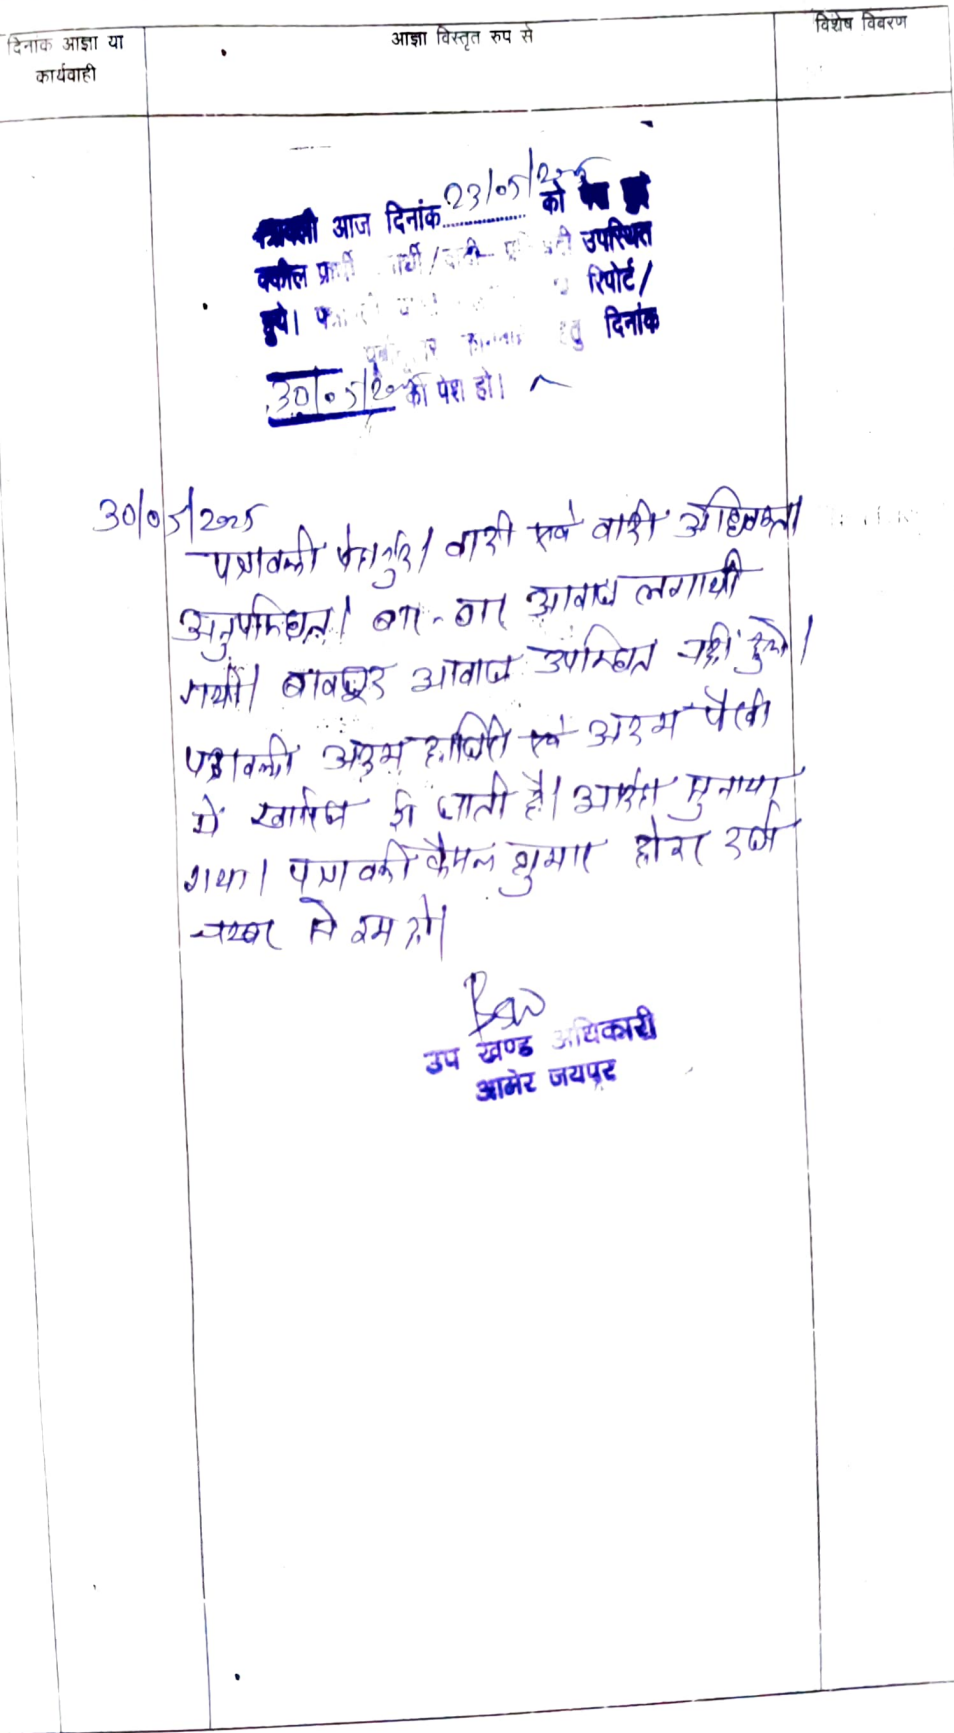 दिनाक आज्ञा या
कार्यवाही
आज्ञा विस्तृत रुप से
विशेष विवरण
पत्रावली आज दिनांक 23/05/2025 को पेश हुई
वकील प्रार्थी / उपस्थित
हुये। रिपोर्ट/
हेतु दिनांक
30/05/2025 को पेश हो।
30/05/2025
पत्रावली पेश हुई। वादी एवं वादी अधिवक्ता
अनुपस्थित। बार-बार आवाज लगायी
गयी। बावजूद आवाज उपस्थित नहीं हुये।
पत्रावली अदम हाजिरी एवं अदम पैरवी
में खारिज की जाती है। आदेश सुनाया
गया। पत्रावली फैसल शुमार होकर दर्ज
नम्बर से कम हो।
उप खण्ड अधिकारी
आमेर जयपुर